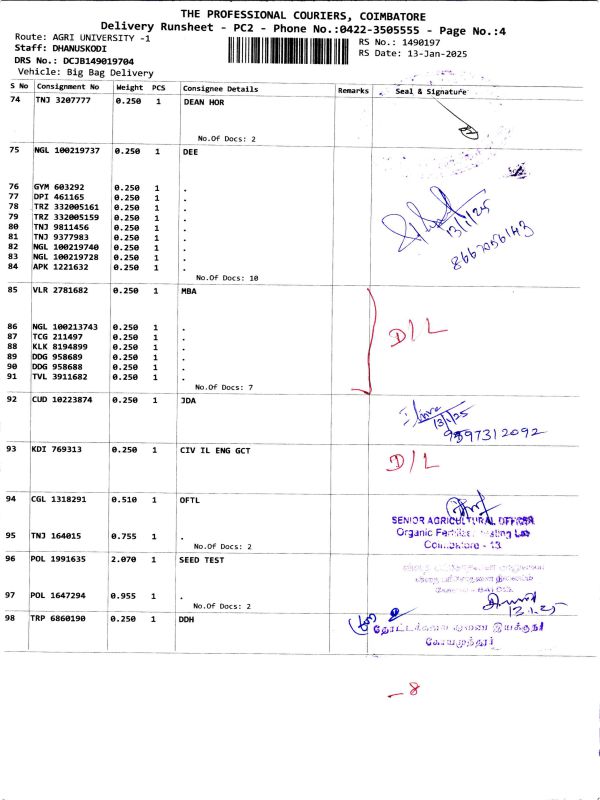 THE PROFESSIONAL COURIERS, COIMBATORE
Delivery Runsheet - PC2 - Phone No.:0422-3505555 - Page No.:4
Route: AGRI UNIVERSITY -1
RS No.: 1490197
Staff: DHANUSKODI
RS Date: 13-Jan-2025
DRS No.: DCJB149019704
Vehicle: Big Bag Delivery
S No Consignment No Weight PCS Consignee Details Remarks Seal & Signature
74 TNJ 3207777 0.250 1 DEAN HOR
No.Of Docs: 2
75 NGL 100219737 0.250 1 DEE
76 GYM 603292 0.250 1 .
77 DPI 461165 0.250 1 .
78 TRZ 332005161 0.250 1 .
79 TRZ 332005159 0.250 1 .
80 TNJ 9811456 0.250 1 .
81 TNJ 9377983 0.250 1 .
82 NGL 100219740 0.250 1 .
83 NGL 100219728 0.250 1 .
84 APK 1221632 0.250 1 .
13/1/25
8667056143
No.Of Docs: 10
85 VLR 2781682 0.250 1 MBA
86 NGL 100213743 0.250 1 .
87 TCG 211497 0.250 1 .
88 KLK 8194899 0.250 1 .
89 DDG 958689 0.250 1 .
90 DDG 958688 0.250 1 .
91 TVL 3911682 0.250 1 .
D/L
No.Of Docs: 7
92 CUD 10223874 0.250 1 JDA
13/1/25
9597312092
93 KDI 769313 0.250 1 CIV IL ENG GCT
D/L
94 CGL 1318291 0.510 1 OFTL
SENIOR AGRICULTURAL OFFICER
Organic Fertilizer Testing Lab
Coimbatore - 13
95 TNJ 164015 0.755 1 .
No.Of Docs: 2
96 POL 1991635 2.070 1 SEED TEST
97 POL 1647294 0.955 1 .
13.1.25
No.Of Docs: 2
98 TRP 6860190 0.250 1 DDH
தோட்டக்கலை துணை இயக்குநர்
கோயமுத்தூர்
- 8